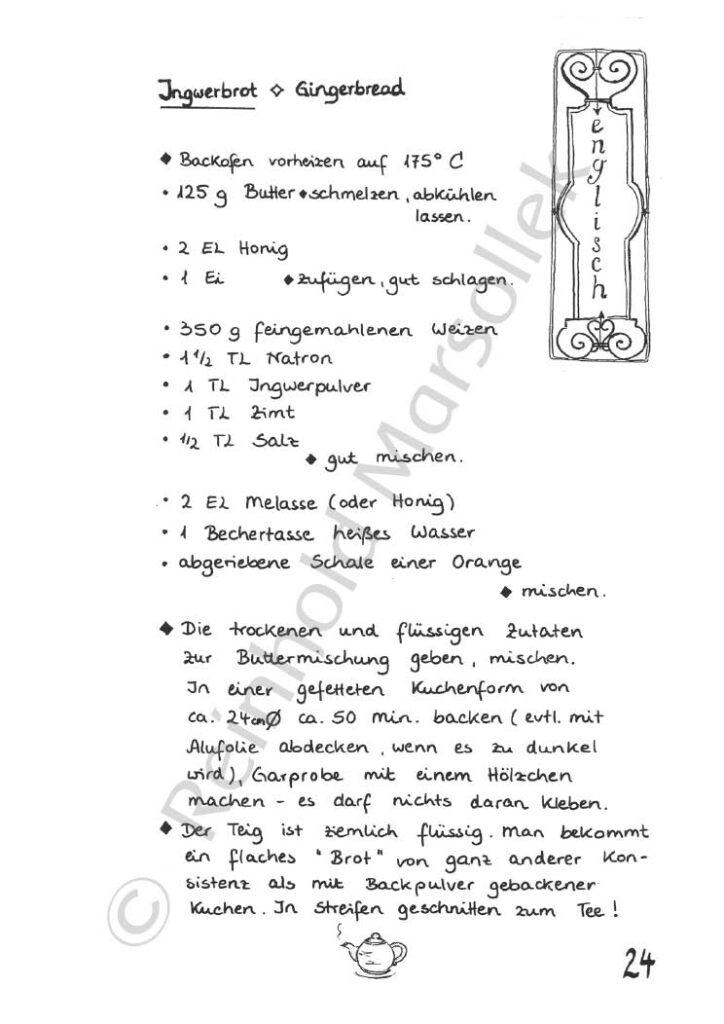 Ingwerbrot ◇ Gingerbread
englisch
◆ Backofen vorheizen auf 175° C
• 125 g Butter ◆ schmelzen, abkühlen
lassen.
• 2 EL Honig
• 1 Ei ◆ zufügen, gut schlagen.
• 350 g feingemahlenen Weizen
• 1 1/2 TL Natron
• 1 TL Ingwerpulver
• 1 TL Zimt
• 1/2 TL Salz
◆ gut mischen.
• 2 EL Melasse (oder Honig)
• 1 Bechertasse heißes Wasser
• abgeriebene Schale einer Orange
◆ mischen.
◆ Die trockenen und flüssigen Zutaten
zur Buttermischung geben, mischen.
In einer gefetteten Kuchenform von
ca. 24cmØ ca. 50 min. backen (evtl. mit
Alufolie abdecken, wenn es zu dunkel
wird), Garprobe mit einem Hölzchen
machen - es darf nichts daran kleben.
◆ Der Teig ist ziemlich flüssig. Man bekommt
ein flaches "Brot" von ganz anderer Kon-
sistenz als mit Backpulver gebackener
Kuchen. In Streifen geschnitten zum Tee!
24
© Reinhold Marsollek